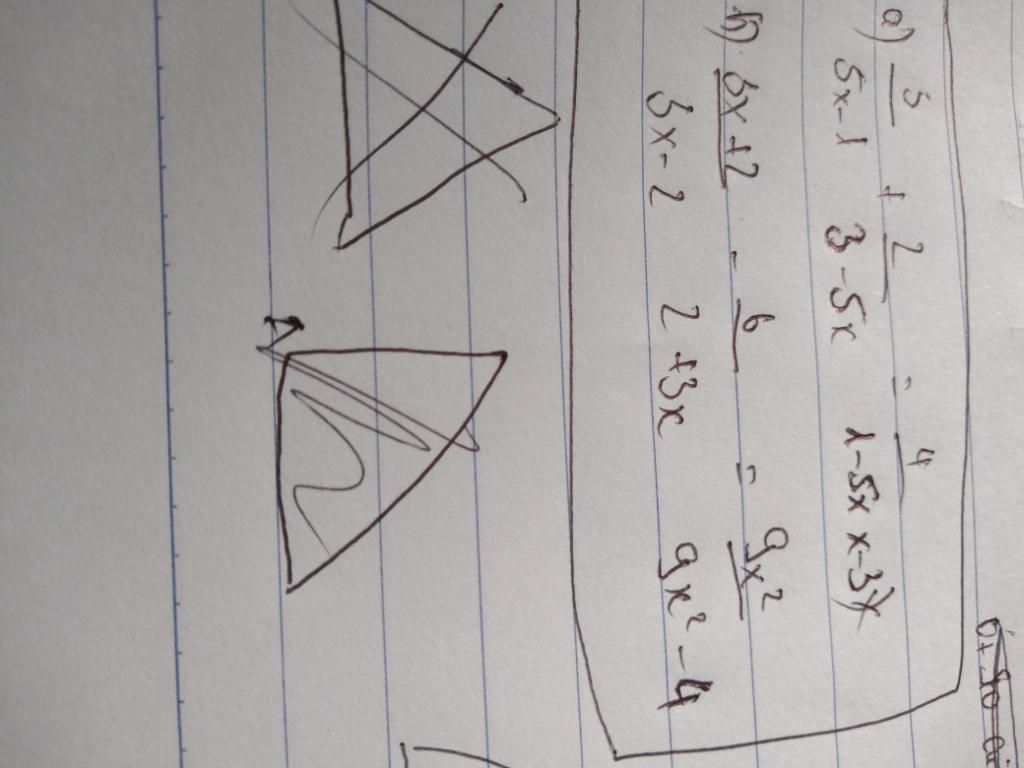 a) 3/(5x-1) + 2/(3-5x) = 4/(1-5x x-3)
b). (3x+2)/(3x-2) - 6/(2+3x) = 9x²/(9x²-4)
A